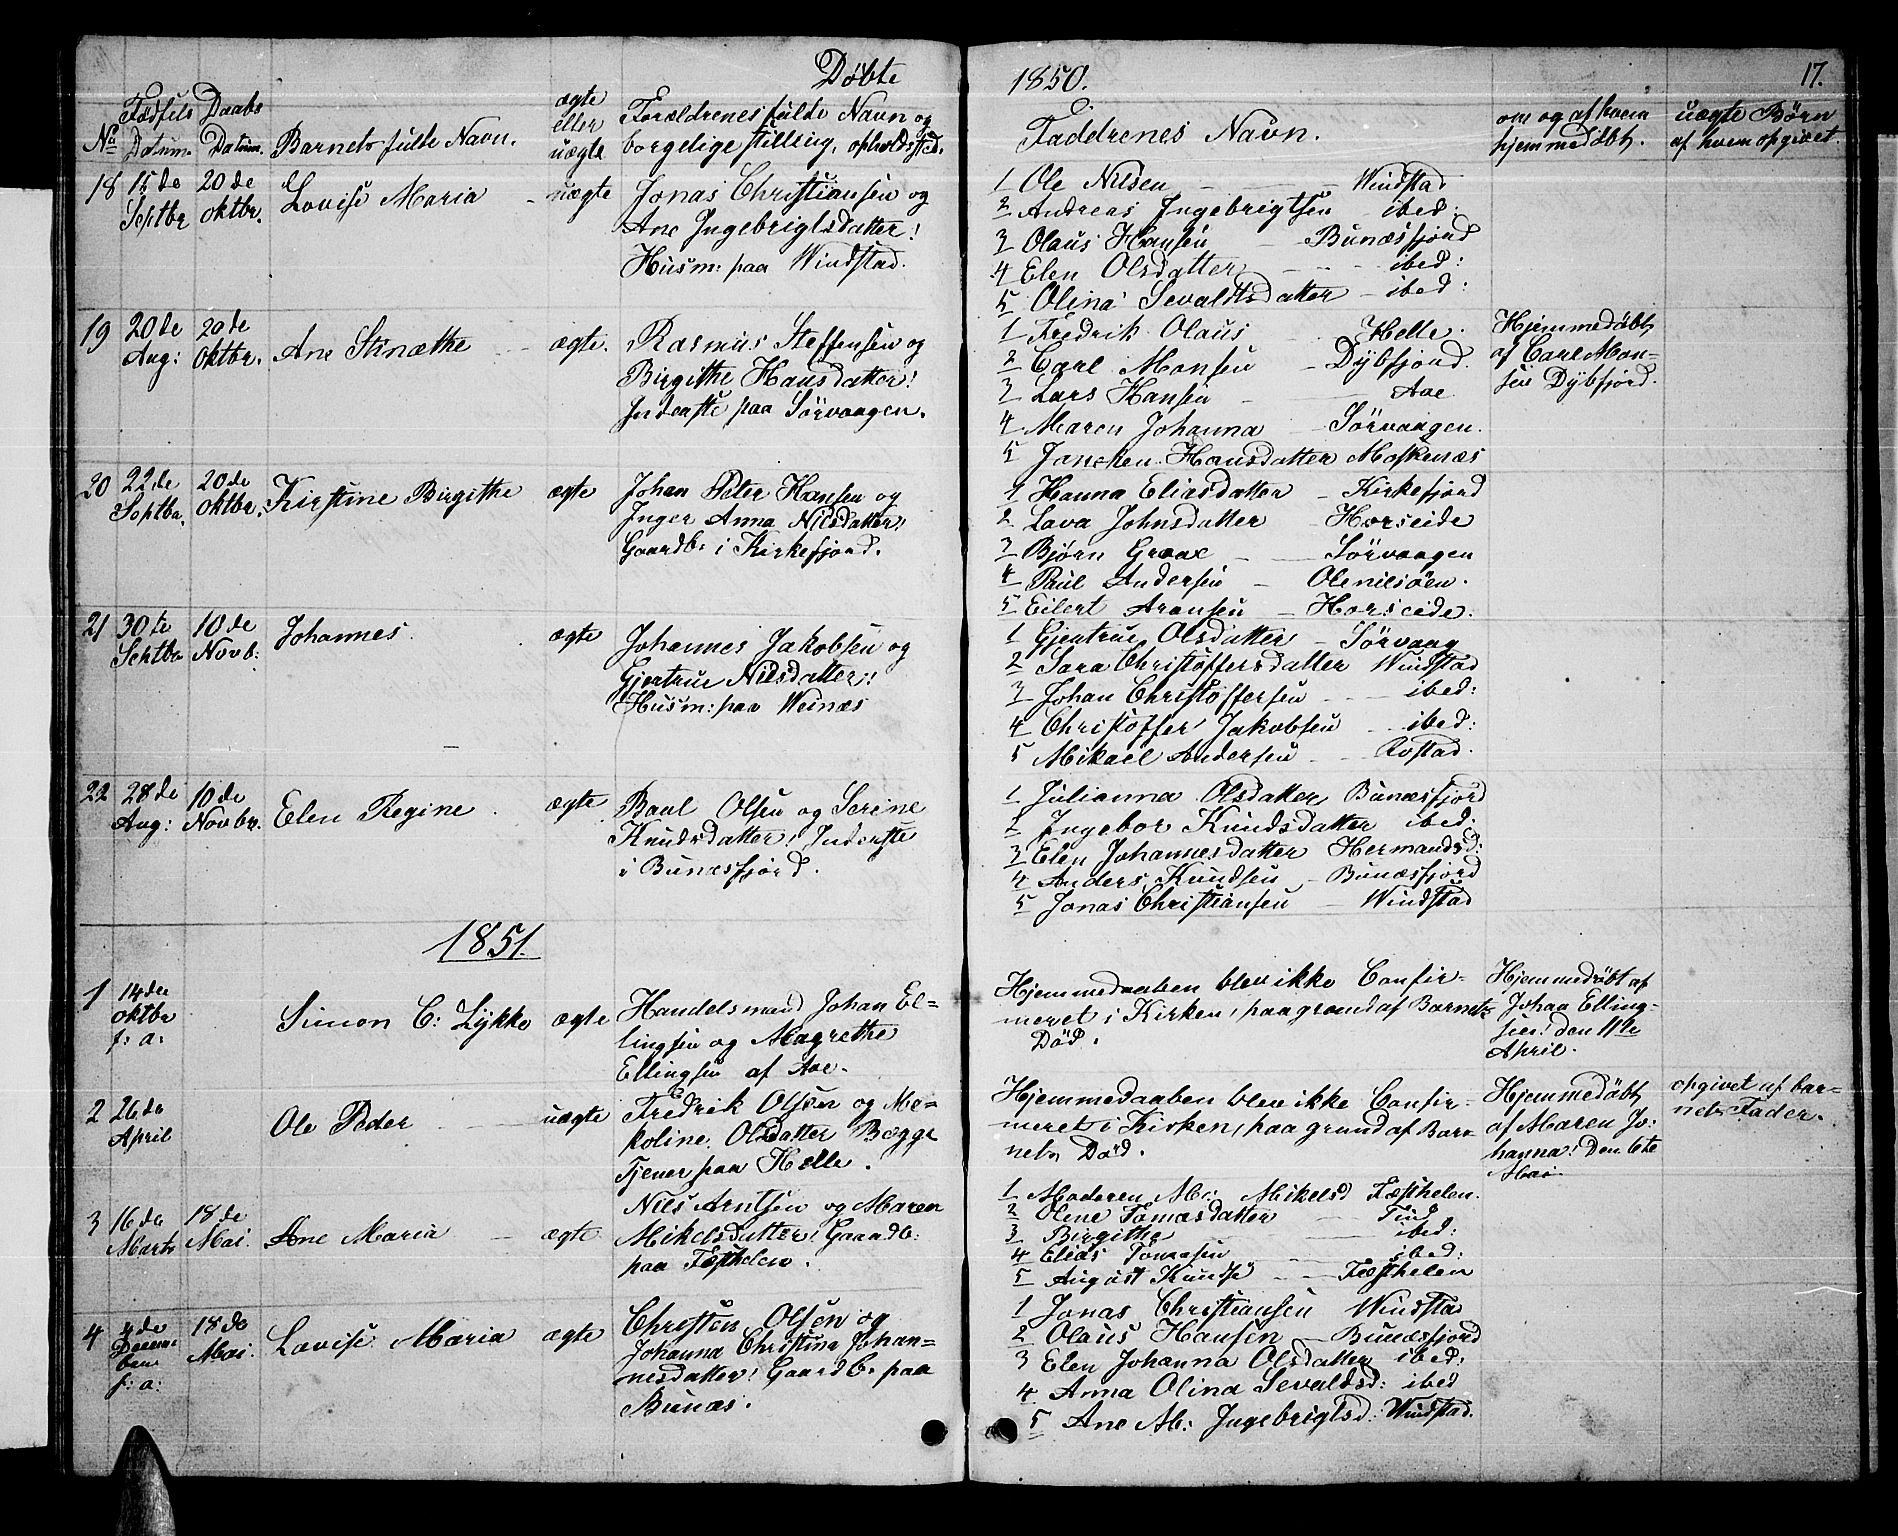 Døbte
1850.
17.
No
Fødsels Datum.
Daabs Datum.
Barnets fulde Navn.
ægte eller uægte
Forældrenes fulde Navn og
borgelige stilling, opholdssted.
Faddrenes Navn.
om og af hvem
hjemmedöbt.
uægte Børn
af hvem opgivet.
18 15de Septbr 20de Oktbr. Lovise Maria uægte
Jonas Christiansen og
Ane Ingebrigtsdatter!
Husm: paa Windstad.
1 Ole Nilsen Windstad
2 Andreas Ingebrigtsen ibed:
3 Olaus Hansen Bunæsfjord
4 Elen Olsdatter ibed:
5 Olina Sevaldtsdatter ibed:
19 20de Aug: 20de Oktbr. Ane ægte.
Rasmus Steffensen og
Birgithe Hansdatter!
Inderste paa Sörvaagen.
1 Fredrik Olaus Helle.
2 Carl Monsen Dybfjord.
3 Lars Hansen Aae
4 Maren Johanna Sörvaagen.
5 Hansdatter Moskenæs
Hjemmedöbt
af Carl Mon=
sen Dybfjord.
20 22de Septbr. 20de Oktbr. Kirstine Birgithe ægte
Johan Peter Hansen og
Inger Anna Nilsdatter!
Gaardb: i Kirkefjord.
1 Hanna Eliasdatter Kirkefjord
2 Lava Johnsdatter Horseide
3 Bjørn Graae Sörvaagen
4 Paul Andersen Olenilsöen.
5 Eilert Aronsen Horseide.
21 30te Septbr 10de Novb: Johannes. ægte
Johannes Jakobsen og
Gjertrue Nilsdatter!
Husm: paa Weinæs
1 Gjertrue Olsdatter Sörvaag
2 Sara Christoffersdatter Windstad
3 Johan Christoffersen ibed:
4 Christoffer Jakobsen ibed:
5 Mikael Andersen Rostad.
22 28de Aug: 10de Novbr. Elen Regine ægte
Paul Olsen og Serine
Knudsdatter! Inderste
i Bunæsfjord.
1 Julianna Olsdatter Bunæsfjord
2 Ingebor Knudsdatter ibed.
3 Elen Johannesdatter Hermandsd:
4 Anders Knudsen Bunæsfjord
5 Jonas Christiansen Windstad
1851.
1 14de Oktbr f: a: Simon C: Lykke ægte
Handelsmand Johan El=
lingsen og Magrethe
Ellingsen af Aae.
Hjemmedaaben blev ikke Confir-
meret i Kirken, paa grund af Barnets
Död.
Hjemmedöbt af
Johan Elling-
sen! den 11te
April.
2 26de April Ole Peder uægte
Fredrik Olsen og Ni=
koline Olsdatter Begge
Tjener paa Helle.
Hjemmedaaben blev ikke Confir-
meret i Kirken, paa grund af Bar-
nets Död.
Hjemmedöbt
af Maren Jo:
hanna! Den 6te
Mai
opgivet af bar=
nets Fader.
3 16de Marts 18de Mai. Ane Maria ægte
Nils Arntsen og Maren
Mikelsdatter! Gaardb:
paa Fæsthelen.
1 Moderen M: Mikelsd Fæsthelen.
2 Oline Tomasdatter Tind
3 Birgithe ibed:
4 Elias Tomasen ibed:
5 August Knuds Fæsthelen
4 4de Decem-ber f: a: 18de Mai. Lovise Maria ægte
Christen Olsen og
Johanna Christina Johan-
nesdatter! Gaardb: paa
Bunæs.
1 Jonas Christiansen Windstad
2 Olaus Hansen Bunæsfjord
3 Elen Johanna Olsdatter ibed:
4 Anna Olina Sevaldsd: ibed
5 Ane M: Ingebrigtsd: Windstad.